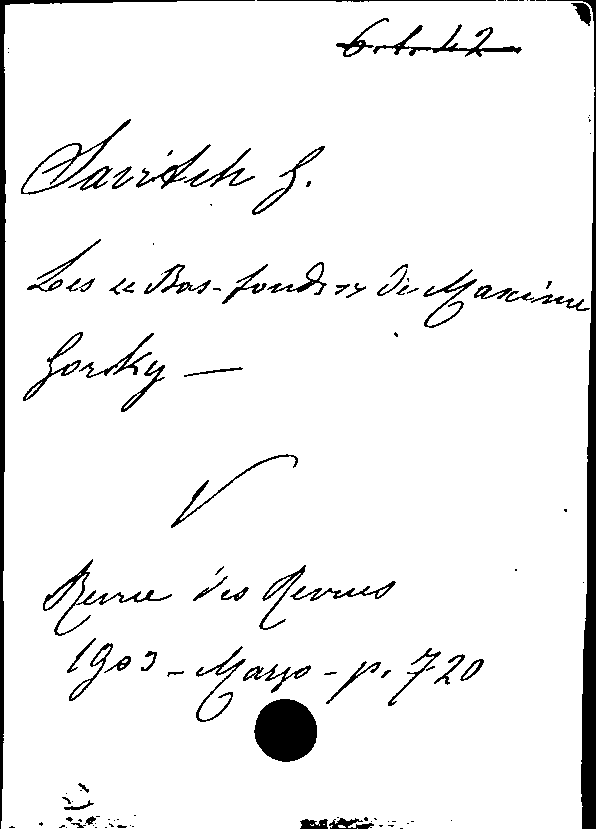 6.1.42
Savitch G.
Les « Bas-fonds » de Maxime
Gorky —
V
Revue des Revues
1903 - Marzo - p. 720